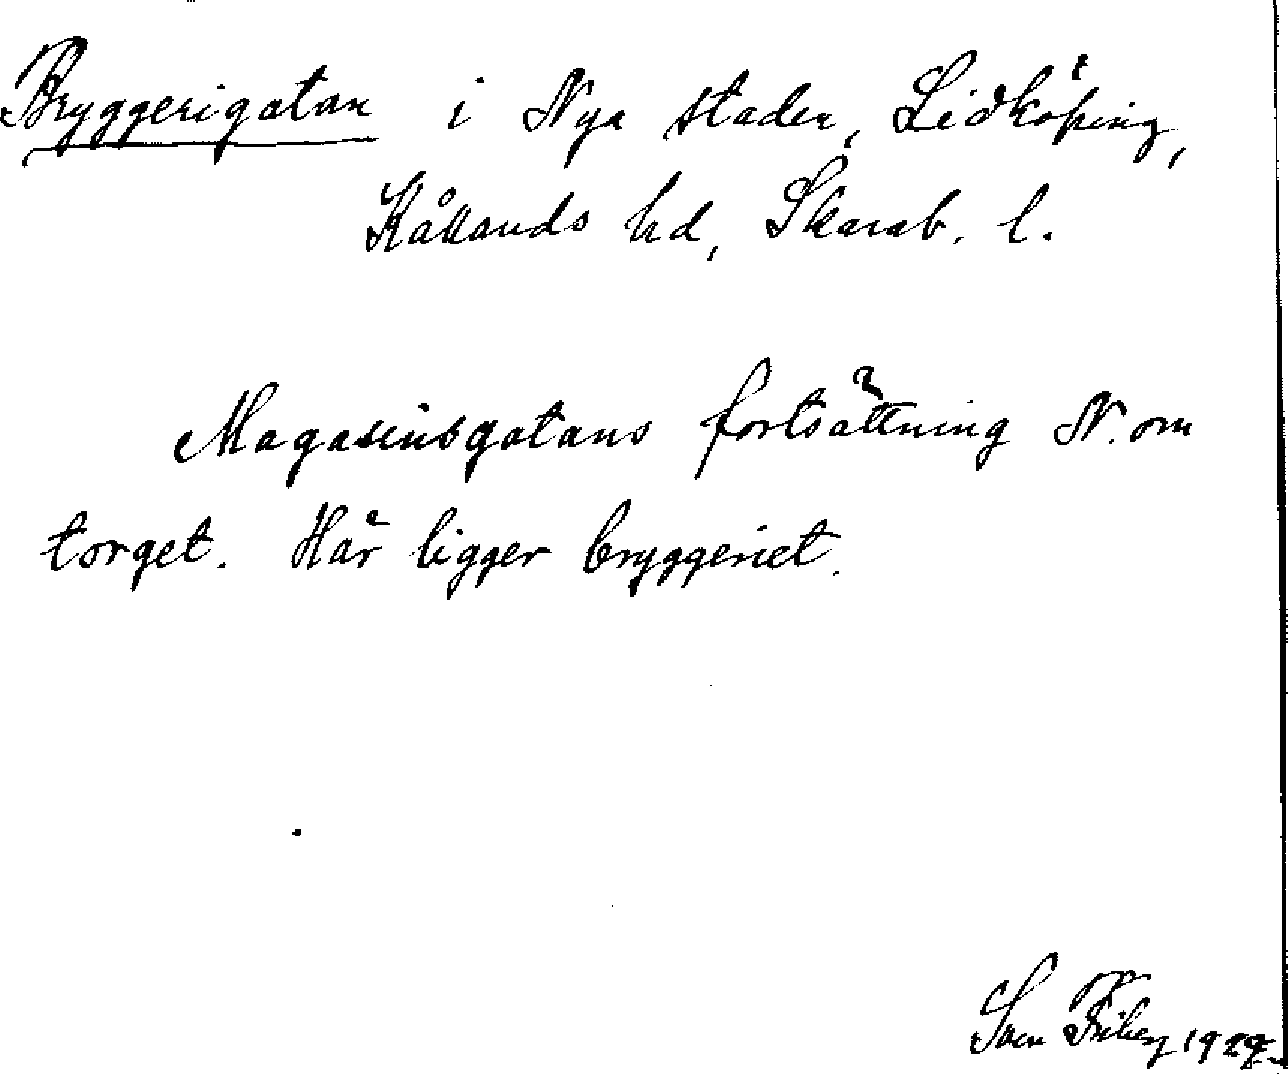 Bryggerigatan i Nya staden, Lidköping,
Kållands hd, Skarab. l.
Magasinsgatans fortsättning N. om
torget. Här ligger bryggeriet.
Sven Friberg 1929